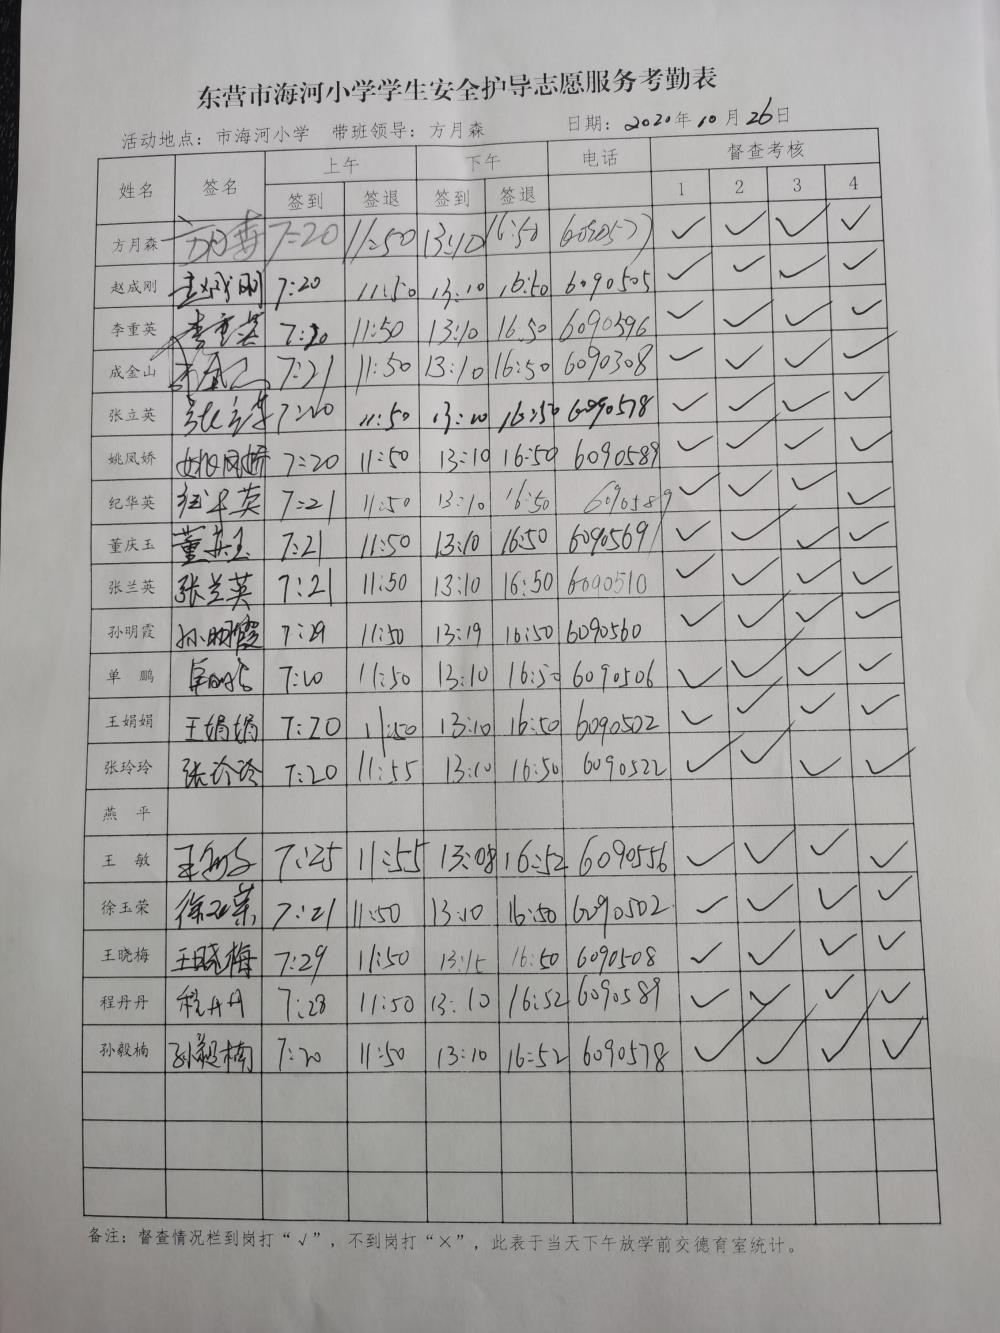 东营市海河小学学生安全护导志愿服务考勤表
活动地点：市海河小学 带班领导：方月森 日期：2020年10月26日
姓名 签名 上午 下午 电话 督查考核
签到 签退 签到 签退 1 2 3 4
方月森 方月森 7:20 11:50 13:10 16:50 6090577 ✓ ✓ ✓ ✓
赵成刚 赵成刚 7:20 11:50 13:10 16:50 6090505 ✓ ✓ ✓ ✓
李重英 李重英 7:20 11:50 13:10 16:50 6090596 ✓ ✓ ✓ ✓
成金山 7:21 11:50 13:10 16:50 6090308 ✓ ✓ ✓ ✓
张立英 张立英 7:20 11:50 13:10 16:50 6090578 ✓ ✓ ✓ ✓
姚凤娇 姚凤娇 7:20 11:50 13:10 16:50 6090589 ✓ ✓ ✓ ✓
纪华英 纪华英 7:21 11:50 13:10 16:50 6090589 ✓ ✓ ✓ ✓
董庆玉 董庆玉 7:21 11:50 13:10 16:50 6090569 ✓ ✓ ✓ ✓
张兰英 张兰英 7:21 11:50 13:10 16:50 6090510 ✓ ✓ ✓ ✓
孙明霞 孙明霞 7:29 11:50 13:19 16:50 6090560 ✓ ✓ ✓ ✓
单 鹏 单鹏 7:20 11:50 13:10 16:50 6090506 ✓ ✓ ✓ ✓
王娟娟 王娟娟 7:20 11:50 13:10 16:50 6090502 ✓ ✓ ✓ ✓
张玲玲 张玲玲 7:20 11:55 13:10 16:50 6090522 ✓ ✓ ✓ ✓
燕 平
王 敏 王敏 7:25 11:55 13:08 16:52 6090556 ✓ ✓ ✓ ✓
徐玉荣 徐玉荣 7:21 11:50 13:10 16:50 6090502 ✓ ✓ ✓ ✓
王晓梅 王晓梅 7:29 11:50 13:15 16:50 6090508 ✓ ✓ ✓ ✓
程丹丹 程丹丹 7:28 11:50 13:10 16:52 6090589 ✓ ✓ ✓ ✓
孙毅楠 孙毅楠 7:20 11:50 13:10 16:52 6090578 ✓ ✓ ✓ ✓
备注：督查情况栏到岗打“√”，不到岗打“×”，此表于当天下午放学前交德育室统计。